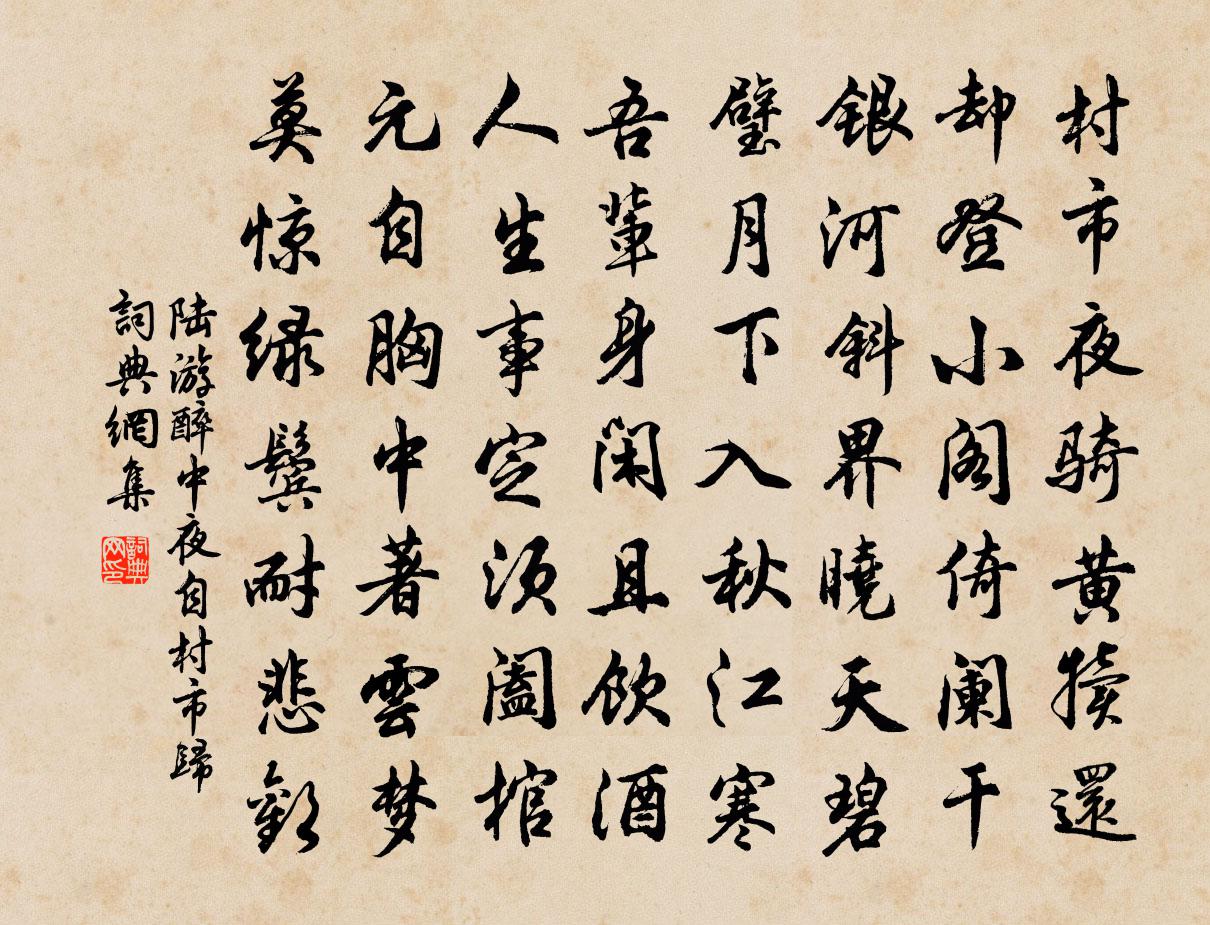 村市夜骑黄犊還
却登小阁倚阑干
銀河斜界曉天碧
璧月下入秋江寒
吾輩身闲且饮酒
人生事定须阖棺
元自胸中著雲梦
莫惊绿鬓耐悲歡
陆游醉中夜自村市歸
詞典網集
詞典网印